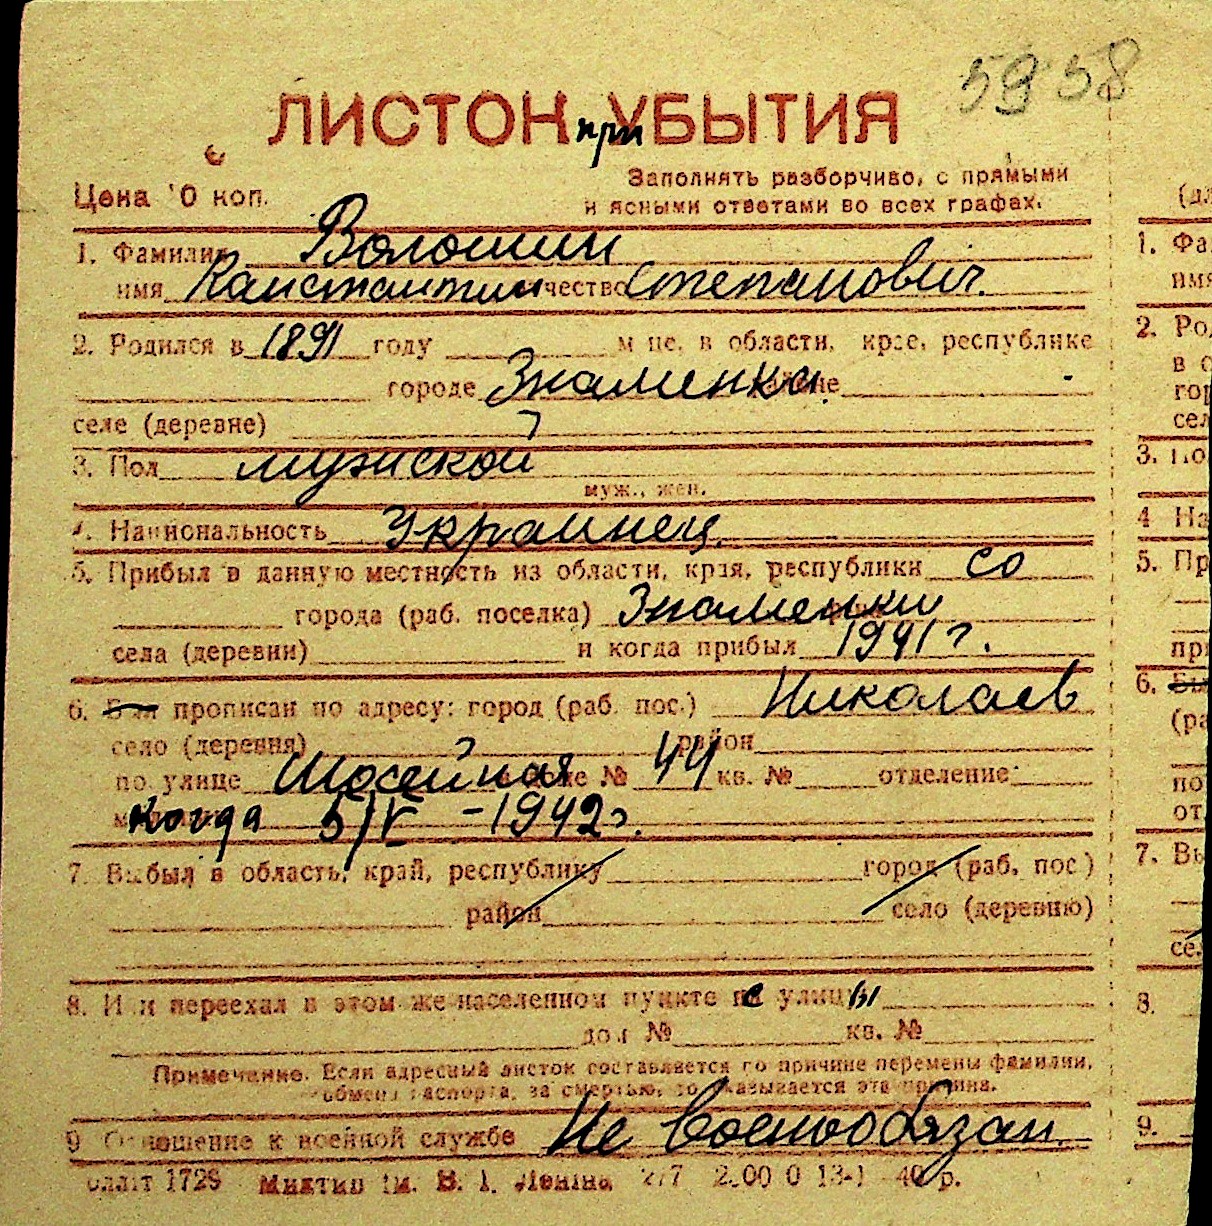 5958
ЛИСТОК при УБЫТИЯ
Цена 10 коп.
Заполнять разборчиво, с прямыми
и ясными ответами во всех графах.
1. Фамилия Волошин
имя Константин отчество Степанович.
2. Родился в 1891 году м-це, в области, крае, республике
городе Знаменка. районе -
селе (деревне)
3. Пол мужской
муж., жен.
4. Национальность Украинец.
5. Прибыл в данную местность из области, края, республики со
города (раб. поселка) Знаменки
села (деревни) и когда прибыл 1941 г.
6. Был прописан по адресу: город (раб. пос.) Николаев
село (деревня) район
по улице Шосейная в доме № 44 кв. № отделение
когда 5/V - 1942 г.
7. Выбыл в область, край, республику город (раб. пос.)
район село (деревню)
8. Или переехал в этом же населенном пункте с улицы
дом № кв. №
Примечание. Если адресный листок составляется по причине перемены фамилии,
обмена паспорта, за смертью, то указывается эта причина.
9 Отношение к военной службе Не военнообязан.
1729 ім. В. І. Леніна 40 р.
1. Фа
имя
2. Ро
в о
гор
сел
3. По
4 На
5. Пр
при
6. Был
(ра
по
от
7. Вы
сел
8.
9.